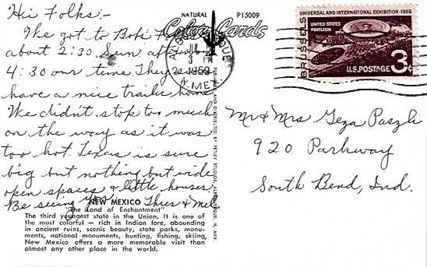 Hi Folks:-
We got to Bob's
about 2:30 Sun afternoon
4:30 our time. They sure
have a nice trailer home.
We didn't stop too much
on the way as it was
too hot. Texas is sure
big but nothing but wide
open spaces & little houses.
Be seeing you
NEW MEXICO
"The Land of Enchantment"
The third youngest state in the Union. It is one of
the most colorful — rich in Indian lore, abounding
in ancient ruins, scenic beauty, state parks, monu-
ments, national monuments, hunting, fishing, skiing,
New Mexico offers a more memorable visit than
almost any other place in the world.
NATURAL
Color Cards
P15009
1958
N. MEX.
BRUSSELS
UNIVERSAL AND INTERNATIONAL EXHIBITION-1958
UNITED STATES
PAVILION
U.S. POSTAGE 3¢
Mr & Mrs Geza
920 Parkway
South Bend, Ind.